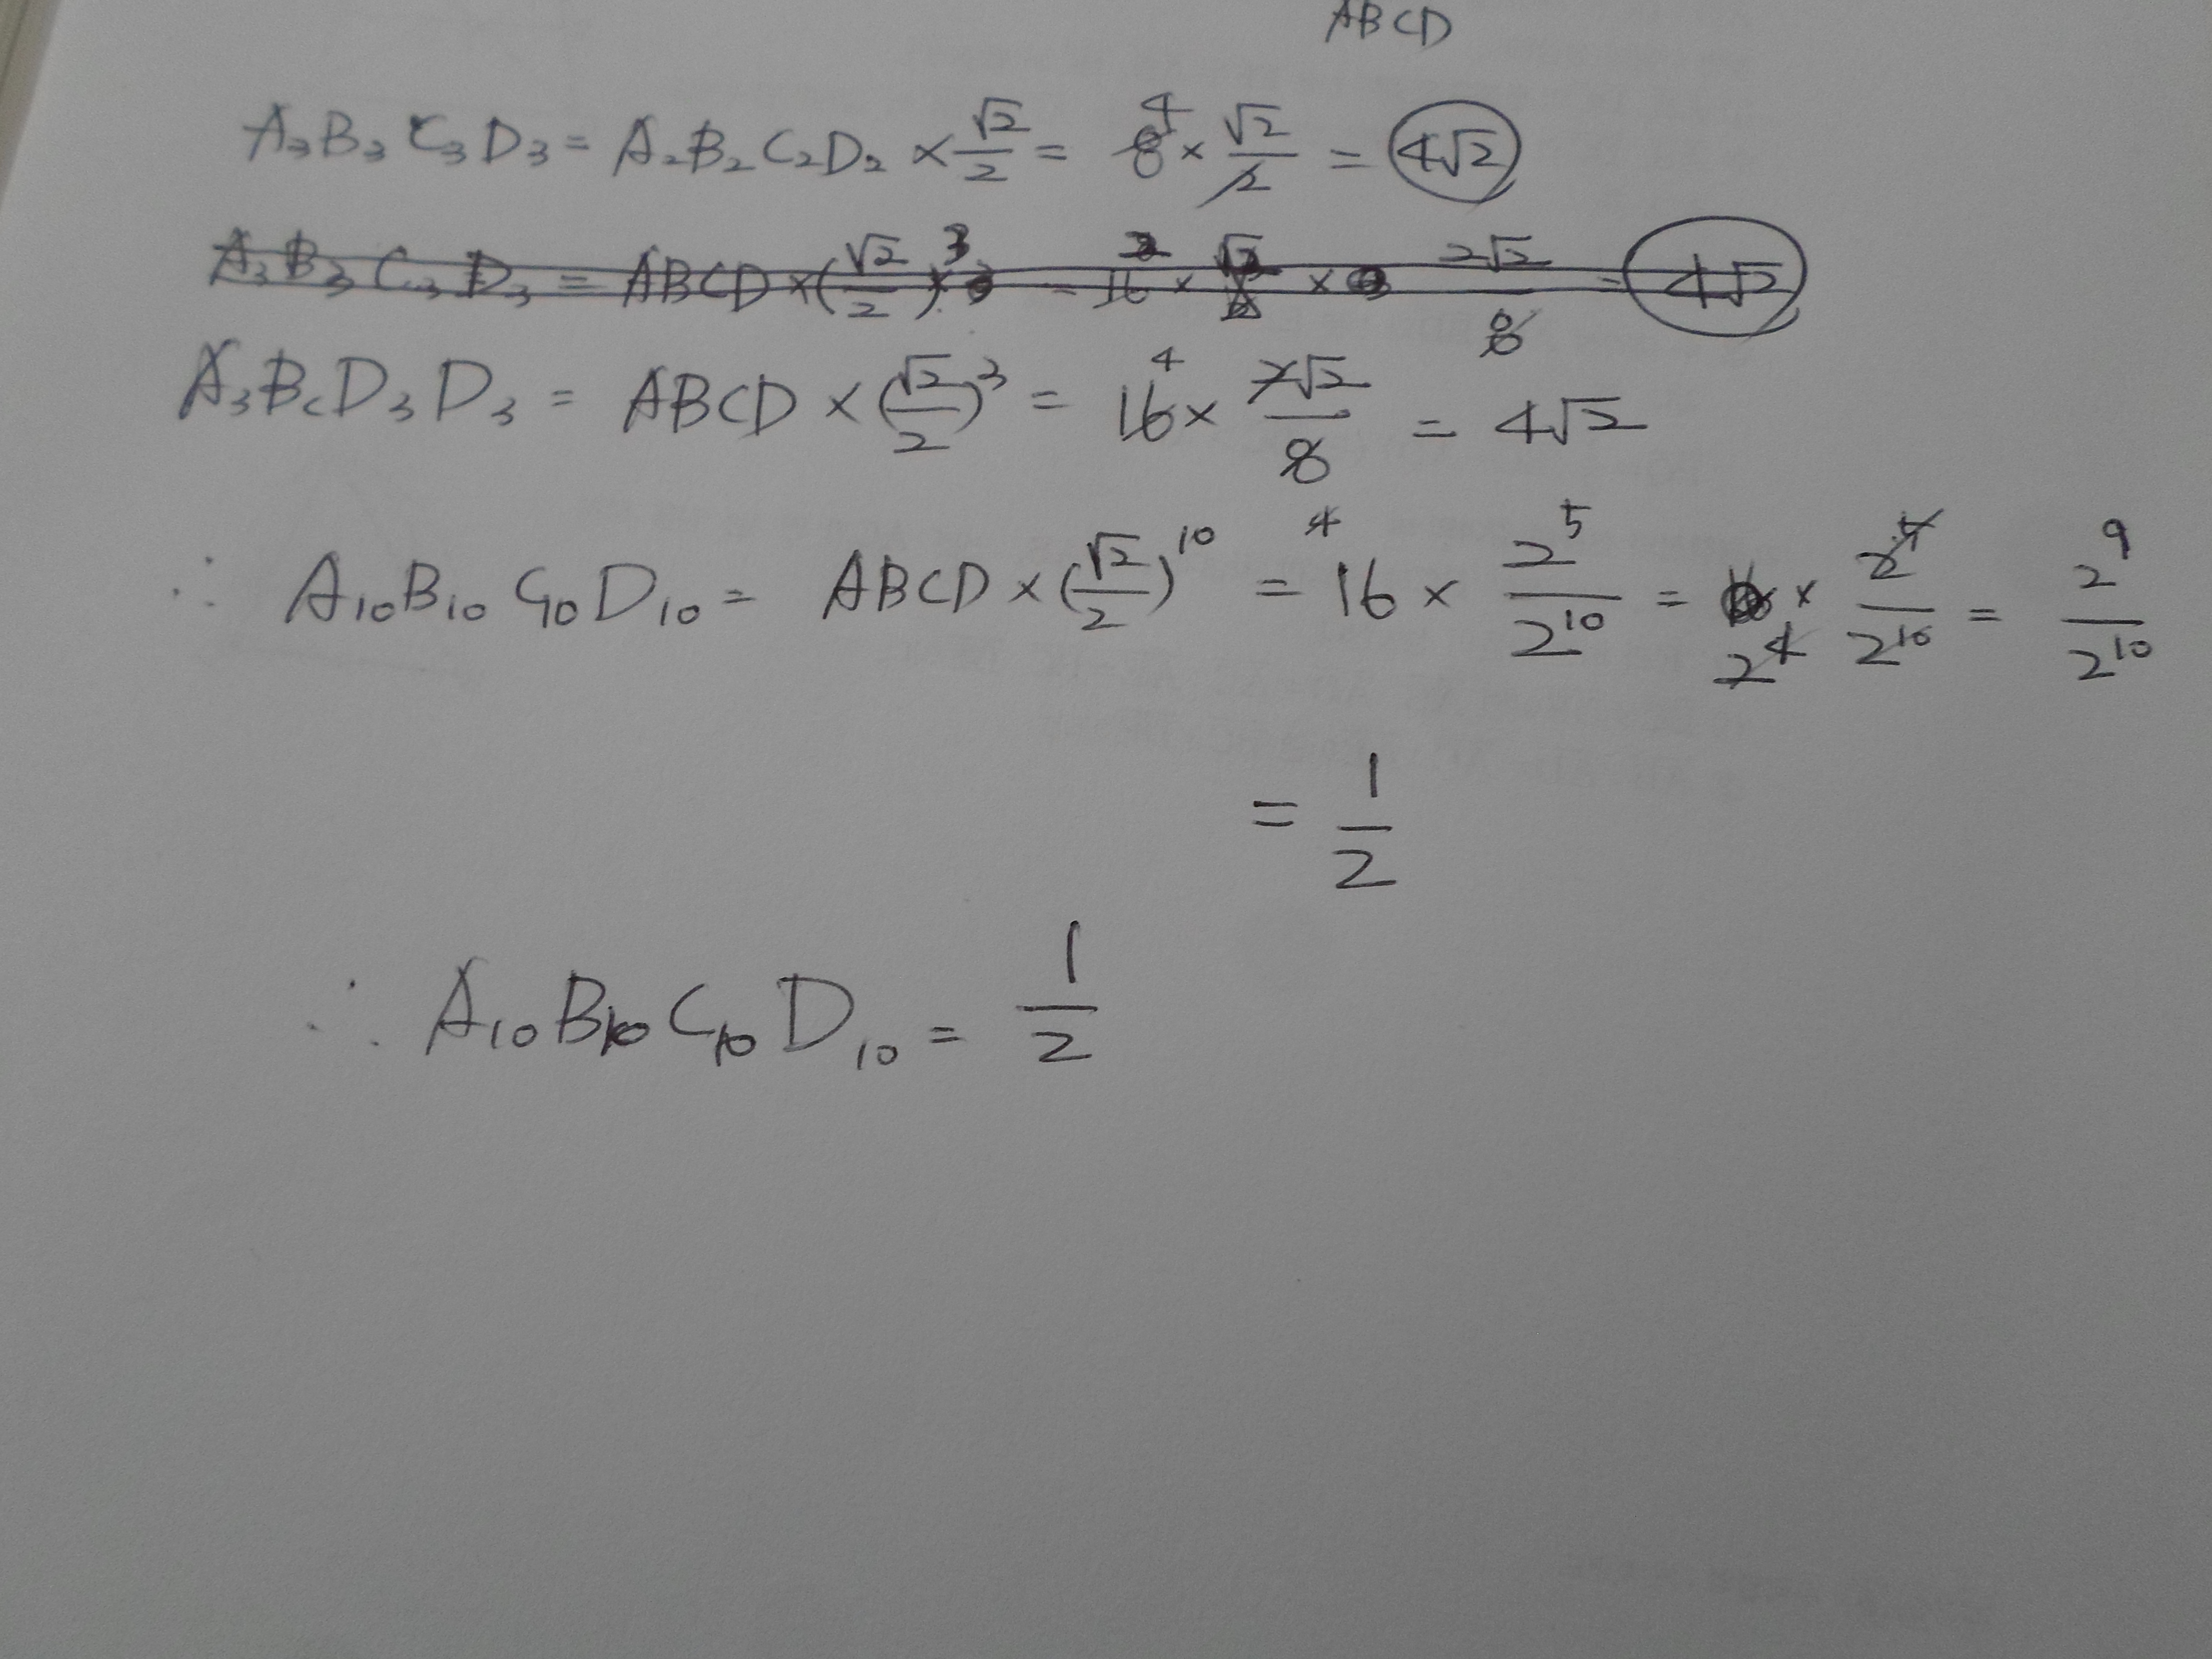 ABCD
A₃B₃C₃D₃ = A₂B₂C₂D₂ × √2/2 = 8 4 × √2/2 = 4√2
A₃B₃C₃D₃ = ABCD × (√2/2)³ = 16 × 2√2/8 = 4√2
A₃BcD₃D₃ = ABCD × (√2/2)³ = 16 4 × 2√2/8 = 4√2
∴ A₁₀B₁₀C₁₀D₁₀ = ABCD × (√2/2)¹⁰ = 4 16 × 2⁵/2¹⁰ = 2⁴ × 2⁵/2¹⁰ = 2⁹/2¹⁰
= 1/2
∴ A₁₀B₁₀C₁₀D₁₀ = 1/2